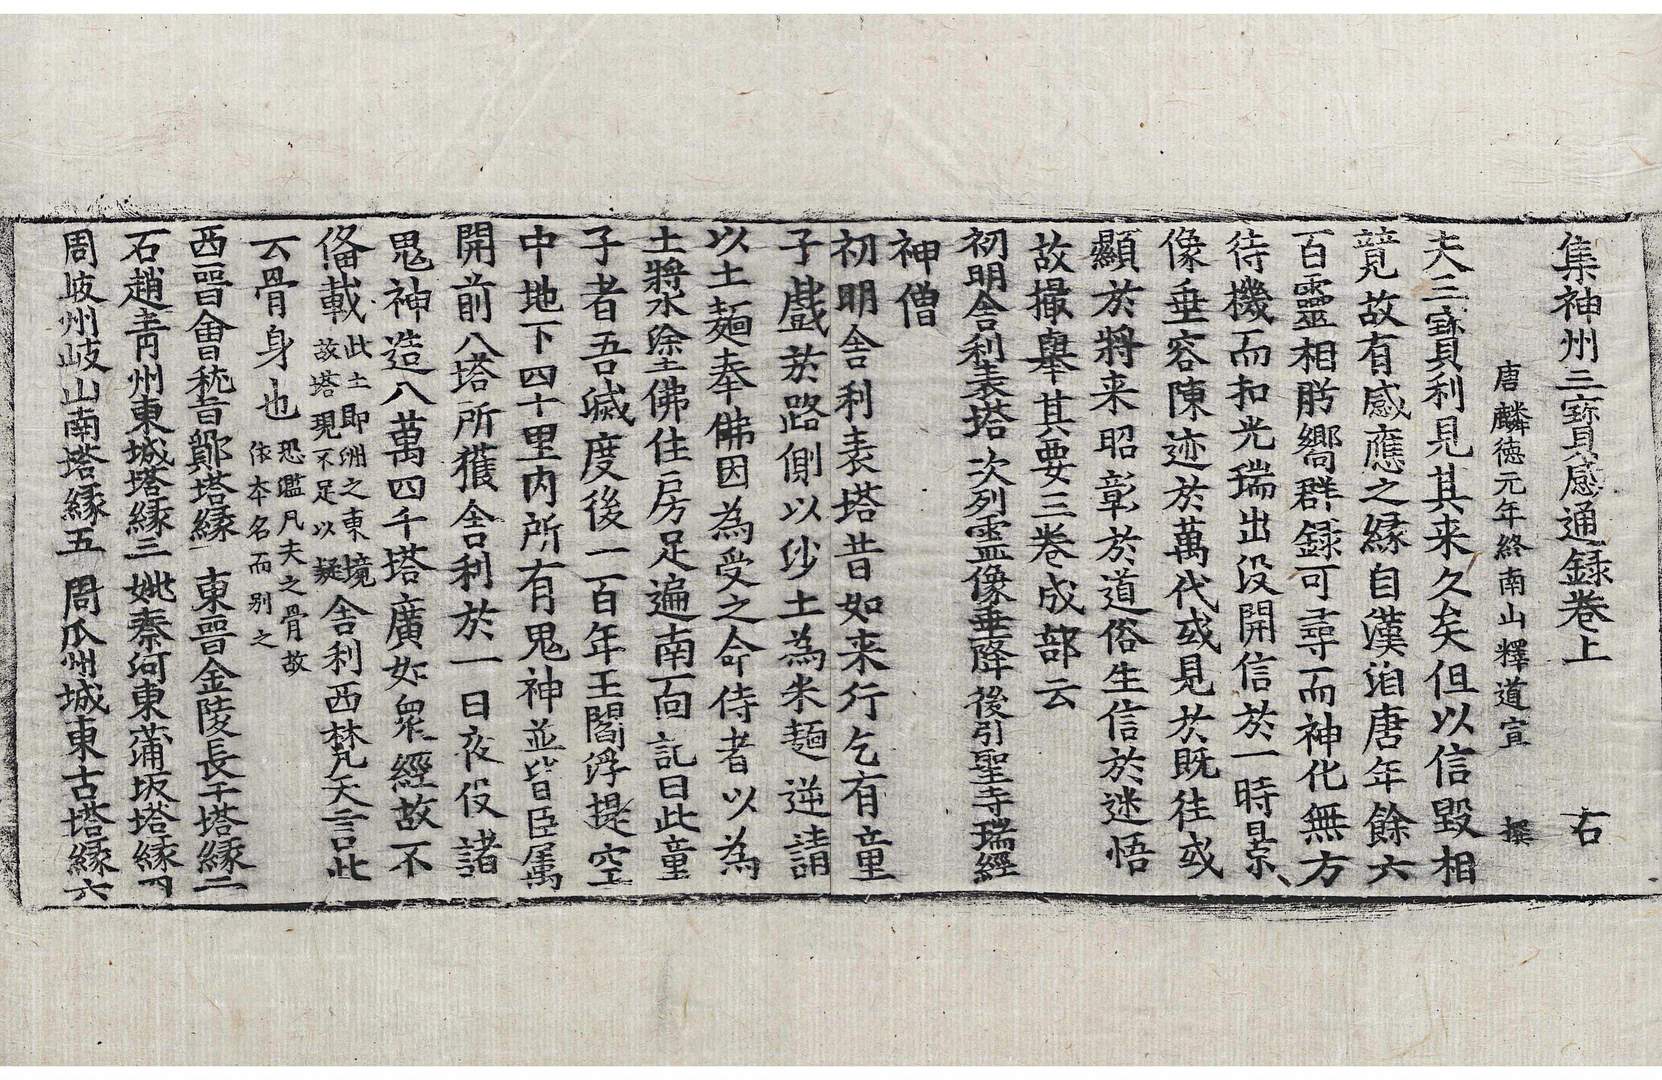 集神州三寶感通録卷上　右
唐麟徳元年終南山釋道宣　撰
夫三寶利見其来久矣但以信毀相
競故有感應之縁自漢洎唐年餘六
百靈相肹嚮群録可尋而神化無方
待機而扣光瑞出没開信於一時景
像垂容陳迹於萬代或見於既往或
顯於將来昭彰於道俗生信於迷悟
故撮舉其要三卷成部云
初明舎利表塔次列霊像垂降後引聖寺瑞經
神僧
初明舎利表塔昔如来行乞有童
子戲於路側以沙土為米麺逆請
以土麺奉佛因為受之命侍者以為
土將水塗佛住房足遍南面記曰此童
子者吾滅度後一百年王閻浮提空
中地下四十里内所有鬼神並皆臣属
開前八塔所獲舎利於一日夜役諸
鬼神造八萬四千塔廣如衆經故不
俻載此土即洲之東境故塔現不足以疑舎利西梵天言此
云骨身也恐濫凡夫之骨故依本名而别之
西晉會稽鄮塔縁一東晉金陵長干塔縁二
石趙青州東城塔縁三姚秦河東蒲坂塔縁四
周岐州岐山南塔縁五周瓜州城東古塔縁六